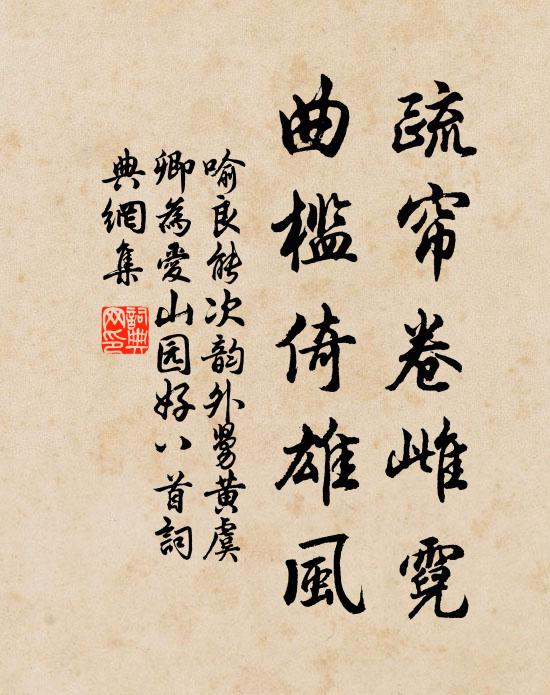 疏帘卷雌霓
曲槛倚雄風
喻良能次韵外舅黄虞
卿為愛山园好八首詞
典網集
詞典网印